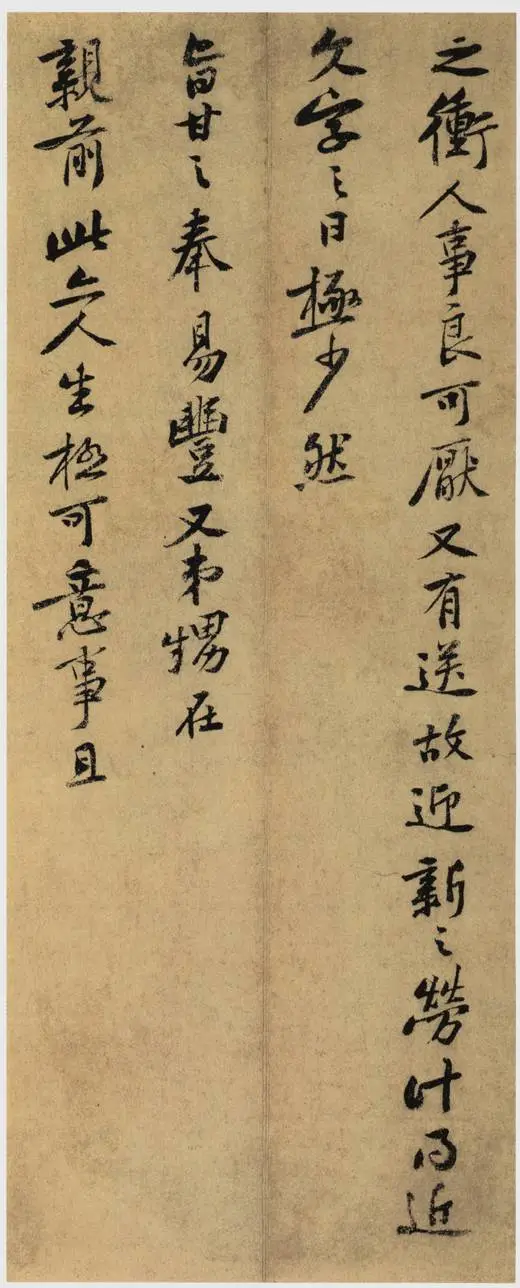 之衝人事良可厭又有送故迎新之勞計得近
文字之日極少然
旨甘之奉易豐又弟甥在
親前此亦人生極可意事且